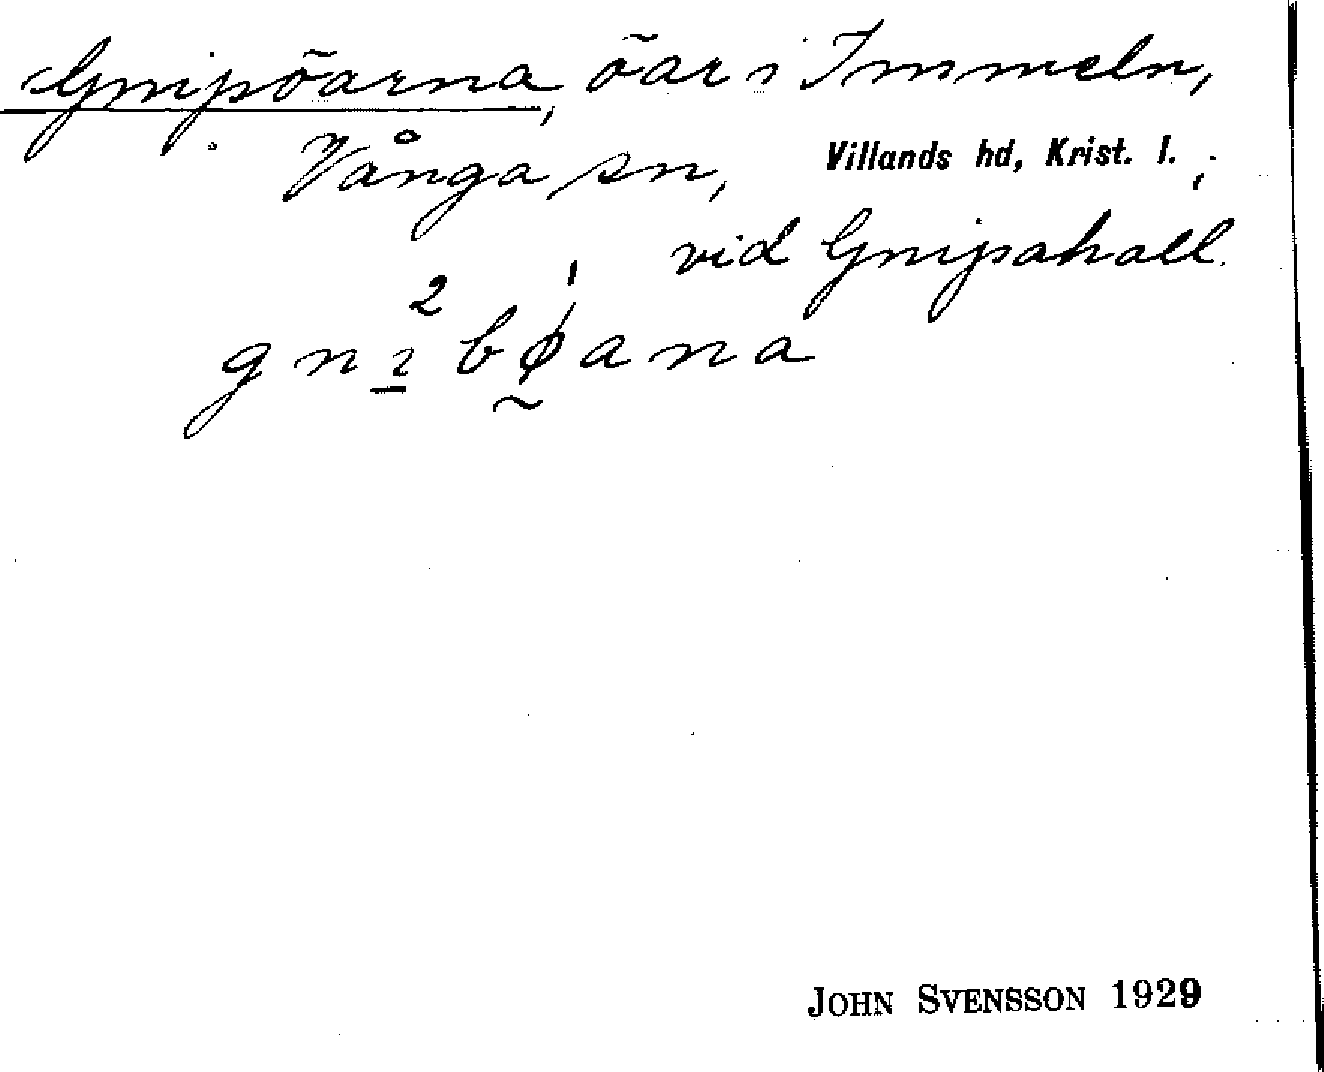 Gnipöarna, öar i Immeln,
Vånga sn, Villands hd, Krist. l. ;
vid Gnipahall.
gnı²bø¹ana
JOHN SVENSSON 1929